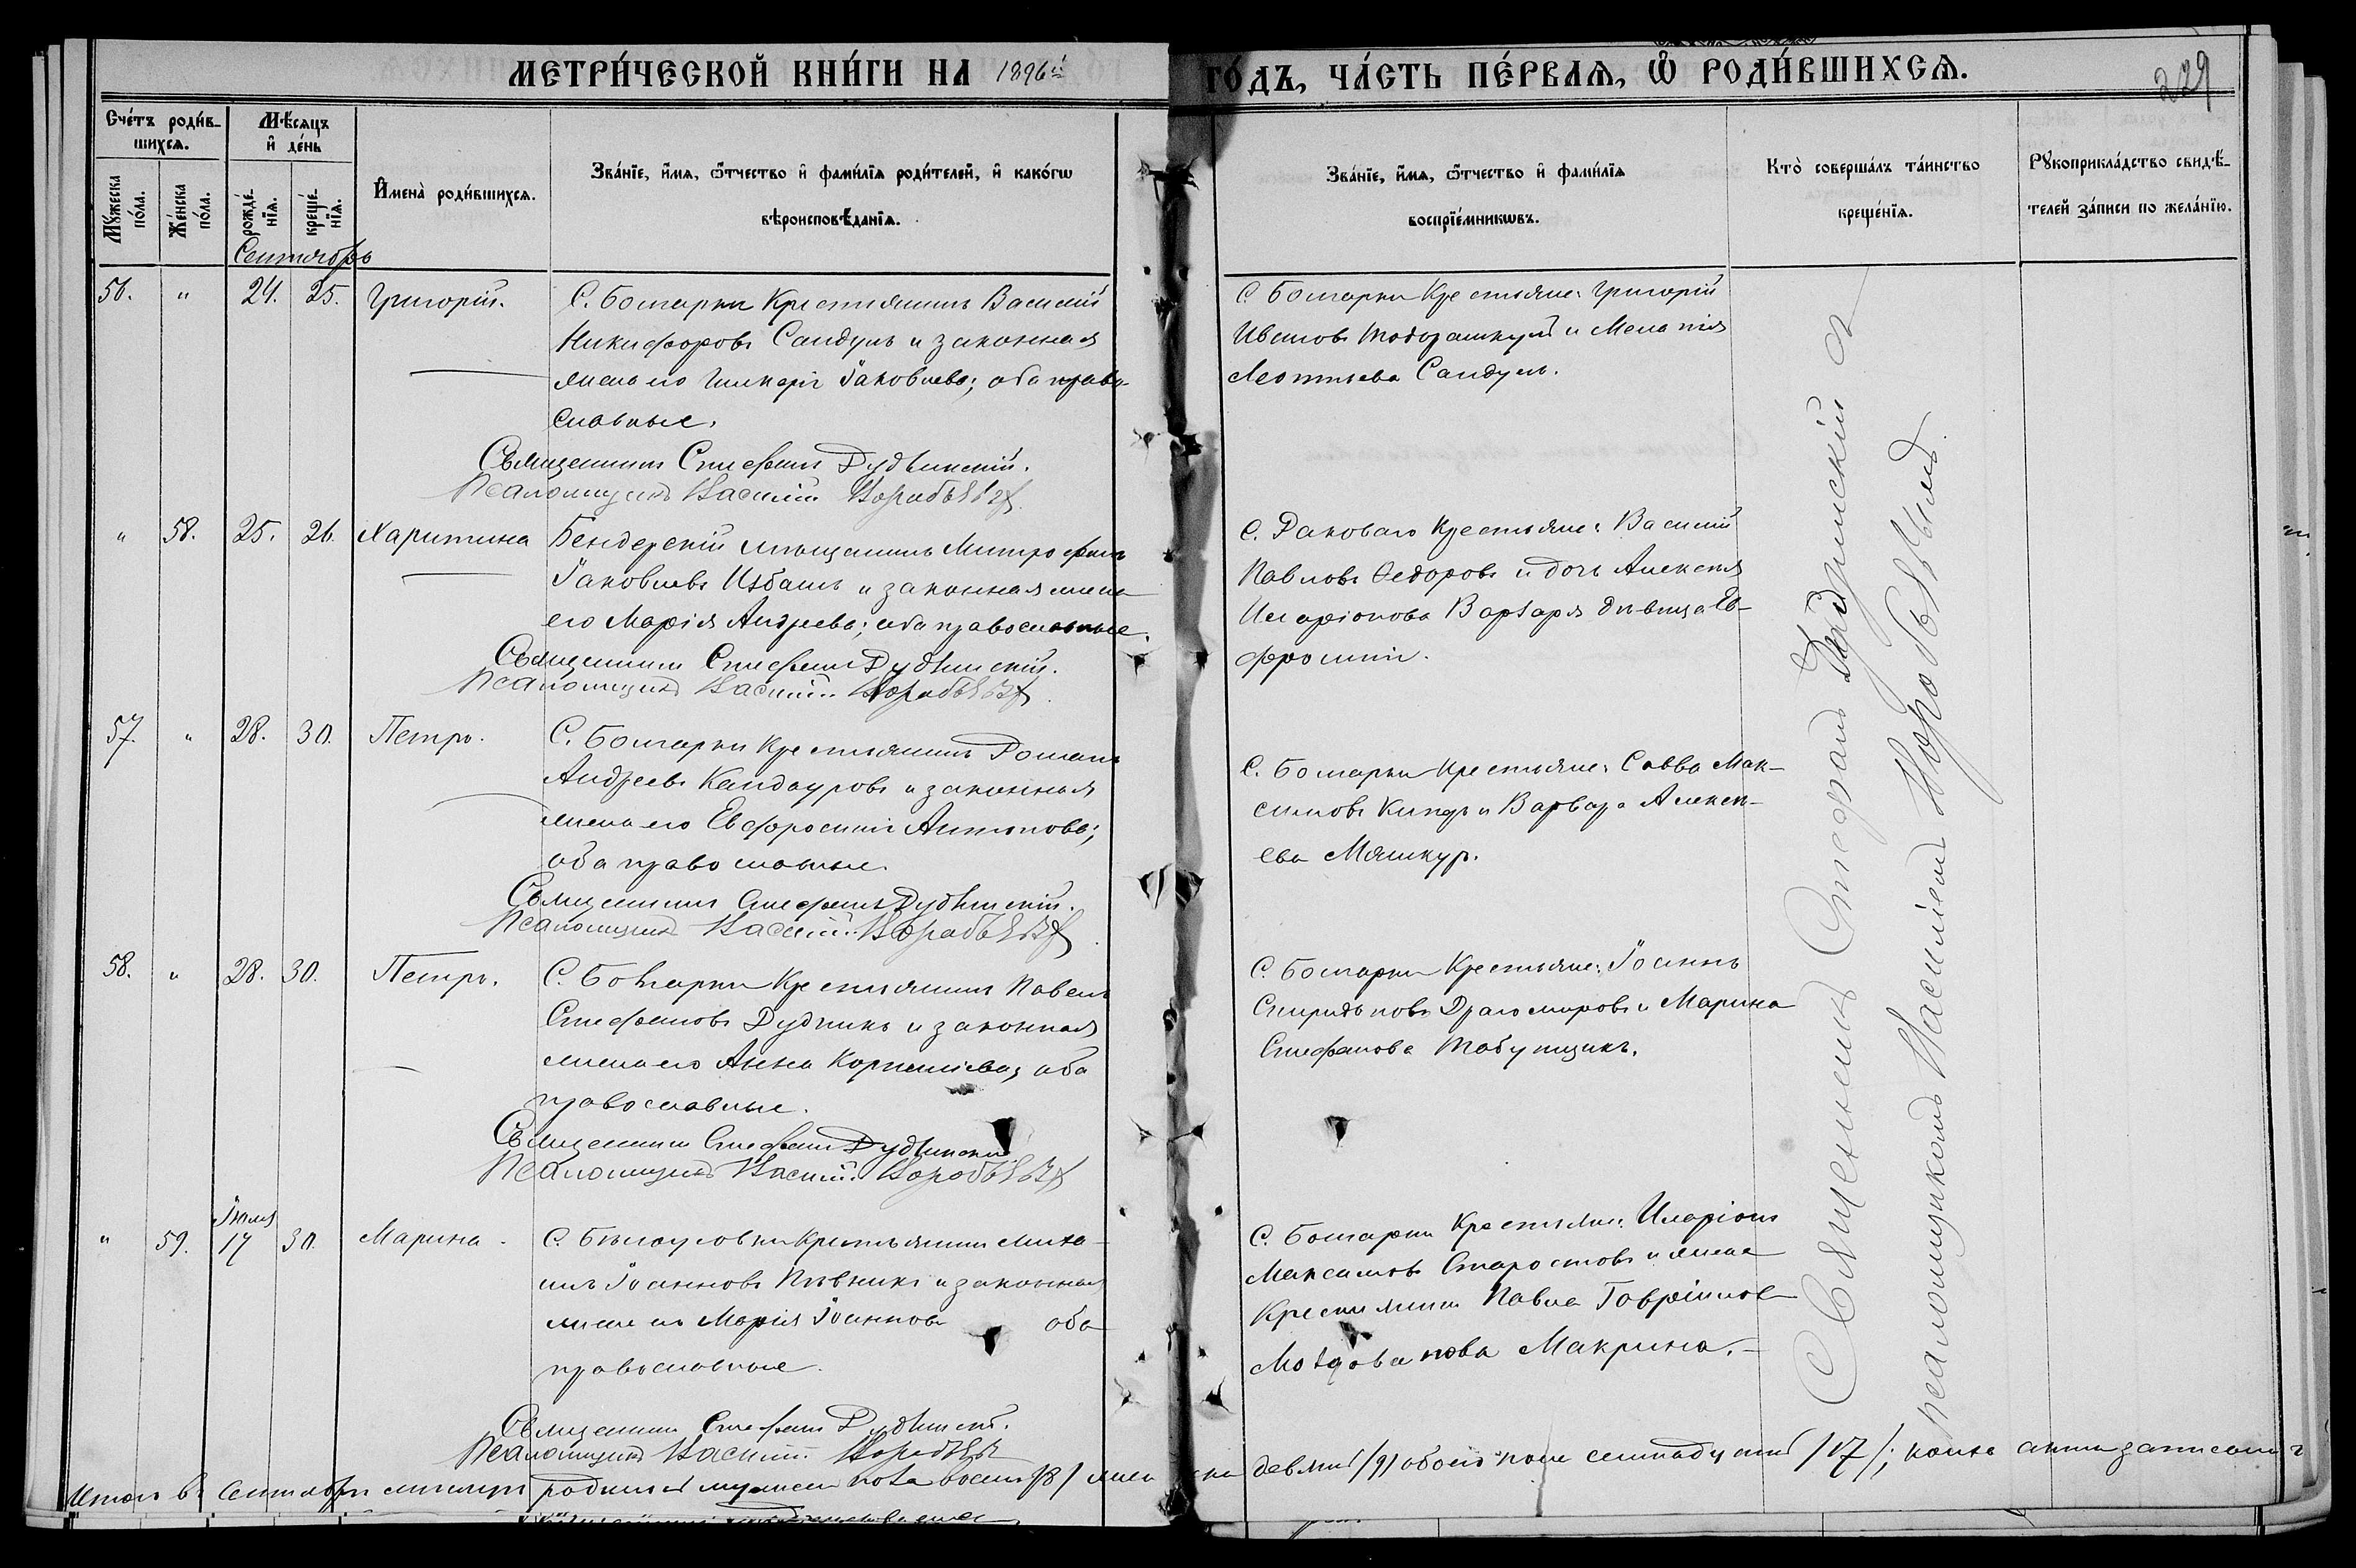 МЕТРИ́ЧЕСКОЙ КНИ́ГИ НА 1896й
ГО́ДЪ, ЧА́СТЬ ПЕ́РВАѦ, Ѽ РОДИ́ВШИХСѦ.
229
Сче́тъ роди́в-
шихсѧ.
Мѣ́сѧцъ
и҆ де́нь
Мꙋ́жеска
по́ла.
Же́нска
по́ла.
рожде́-
нїѧ.
креще́-
нїѧ.
И҆мена̀ роди́вшихсѧ.
Зва́нїе, и҆́мѧ, ѻ҆́тчество и҆ фами́лїѧ роди́телей, и҆ како́гѡ
вѣроисповѣ́данїѧ.
Зва́нїе, и҆́мѧ, ѻ҆́тчество и҆ фами́лїѧ
воспрїе́мникѡвъ.
Кто̀ соверша́лъ та́инство
креще́нїѧ.
Рꙋкоприкла́дство свидѣ́-
телей за́писи по жела́нїю.
Сентябрь
56. " 24. 25. Григорій. С. Болгарки Крестьянинъ Василій
Никифоровъ Сандулъ и законная
жена его Гликерія Іаковлева; оба право-
славные.
Священникъ Стефанъ Дудзинскій.
Псаломщикъ Василій Воробьевъ
С. Болгарки Крестьяне: Григорій
Ивановъ Тодорашкулъ и Меланія
Леонтьева Сандулъ.
" 58. 25. 26. Харитина Бендерскій мѣщанинъ Митрофанъ
Іаковлевъ Избашъ и законная жена
его Марія Андреева; оба православные.
Священникъ Стефанъ Дудзинскій.
Псаломщикъ Василій Воробьевъ
С. Раковаго Крестьяне: Василій
Павловъ Ѳедоровъ и дочь Алексѣя
Иларіонова Варзаря дѣвица Ев-
фросинія.
57. " 28. 30. Петръ. С. Болгарки Крестьянинъ Романъ
Андреевъ Кандауровъ и законная
жена его Евфросинія Антонова;
оба православные.
Священникъ Стефанъ Дудзинскій.
Псаломщикъ Василій Воробьевъ
С. Болгарки Крестьяне: Савва Мак-
симовъ и Варвара Алексѣ-
ева Мяшкур.
58. " 28. 30. Петръ. С. Болгарки Крестьянинъ Павелъ
Стефановъ Дудникъ и законная
жена его Анна Корнилієва, оба
православные.
Священникъ Стефанъ Дудзинскій
Псаломщикъ Василій Воробьевъ
С. Болгарки Крестьяне: Іоаннъ
Спиридоновъ Драгомировъ и Марина
Стефанова Табунщикъ.
Іюля
" 59. 17 30. Марина. С. Бѣлоусовки Крестьянинъ Миха-
илъ Іоанновъ Пѣвникъ и законная
жена его Марія Іоаннова оба
православные.
Священникъ Стефанъ Дудзинскій.
Псаломщикъ Василій Воробьевъ
С. Болгарки Крестьяне: Иларіонъ
Максимовъ Старостовъ и жена
Крестьянина Павла Гавріилова
Молдованова Макрина.
Священникъ Стефанъ Дудзинскій съ
псаломщикомъ Василіемъ Воробьевымъ.
Итого въ Сентябрѣ мѣсяцѣ родилось мужеска пола восемь /8/ женска девять /9/ обоего пола семнадцать /17/;